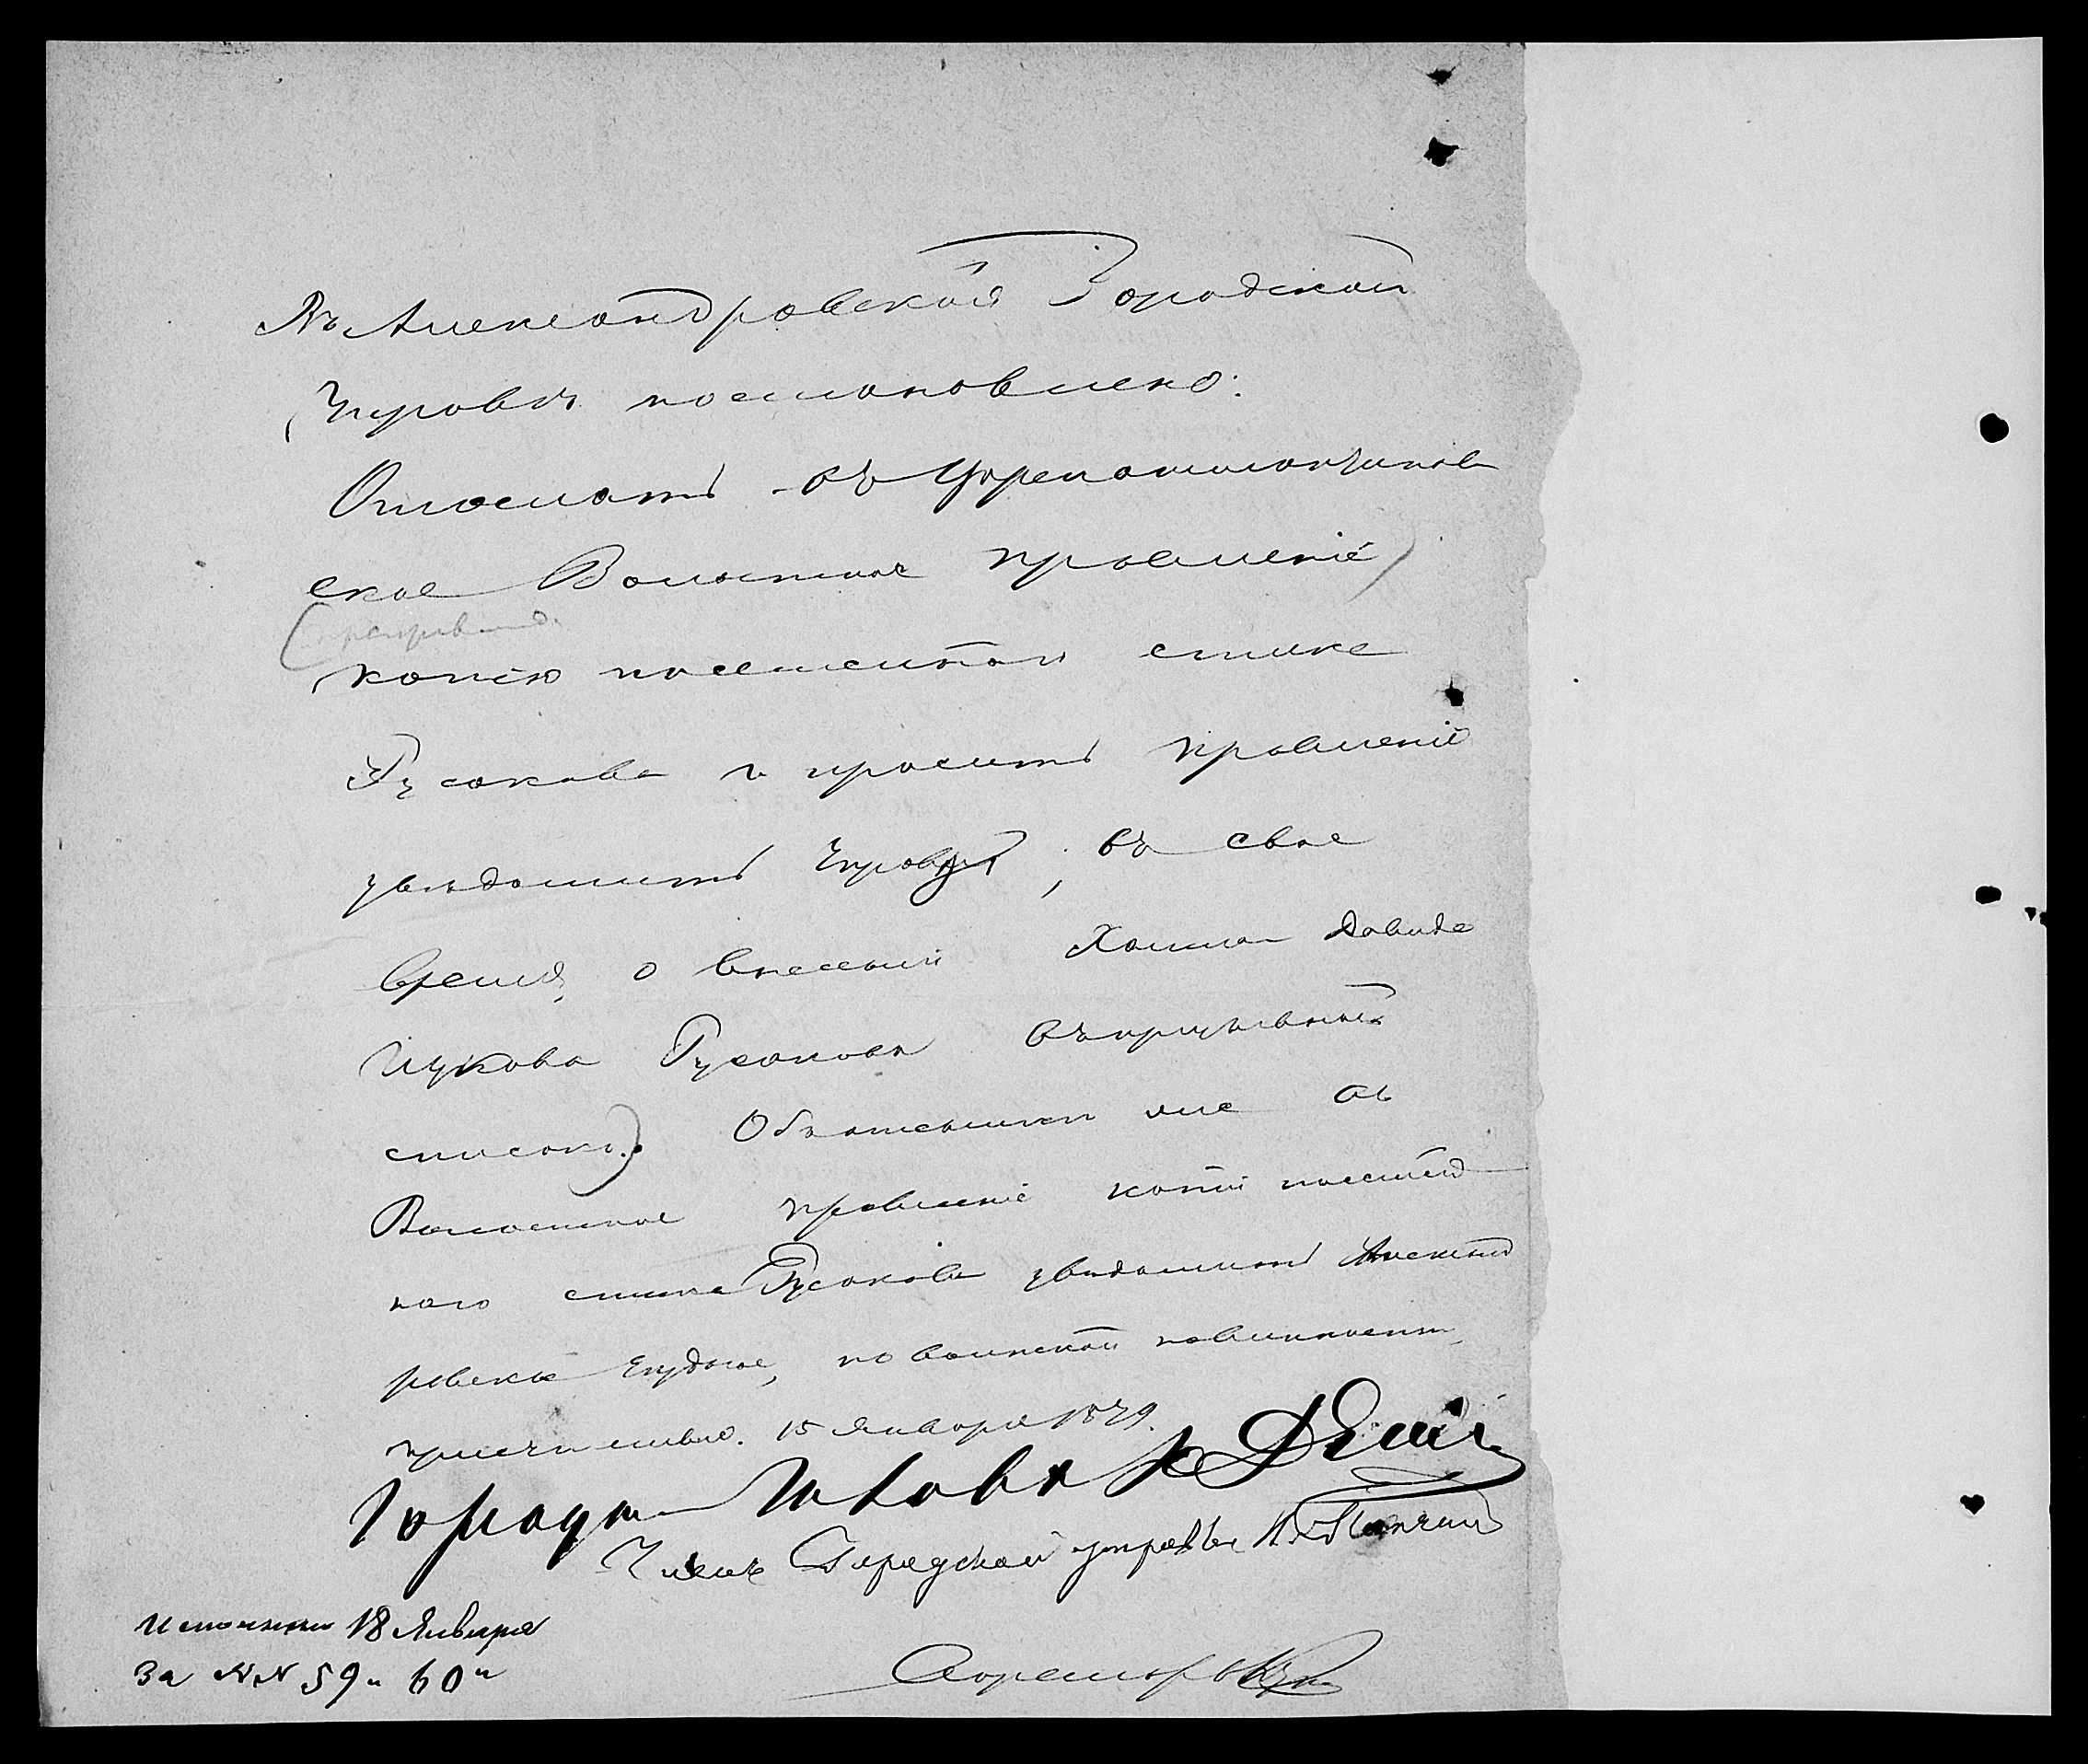 Въ Александровской Городской
Управѣ постановлено:
Отослать въ
ское Волостное правленіе
копію посемейнаго списка
Гусакова и просить правленіе
увѣдомить Управу, въ свое
время, о внесеніи Хаима Давида
Ицкова Гусакова въ призывной
списокъ. Объ отсылкѣ же въ
Волостное правленіе копіи посемей
наго списка Гусакова увѣдомить Александ
ровское Уѣздное, по воинской повинности,
присутствіе. 15 Января 1879.
Городской Голова
Членъ Городской управы
Секретарь
Исполнено 18 Января
За №№ 59 и 60